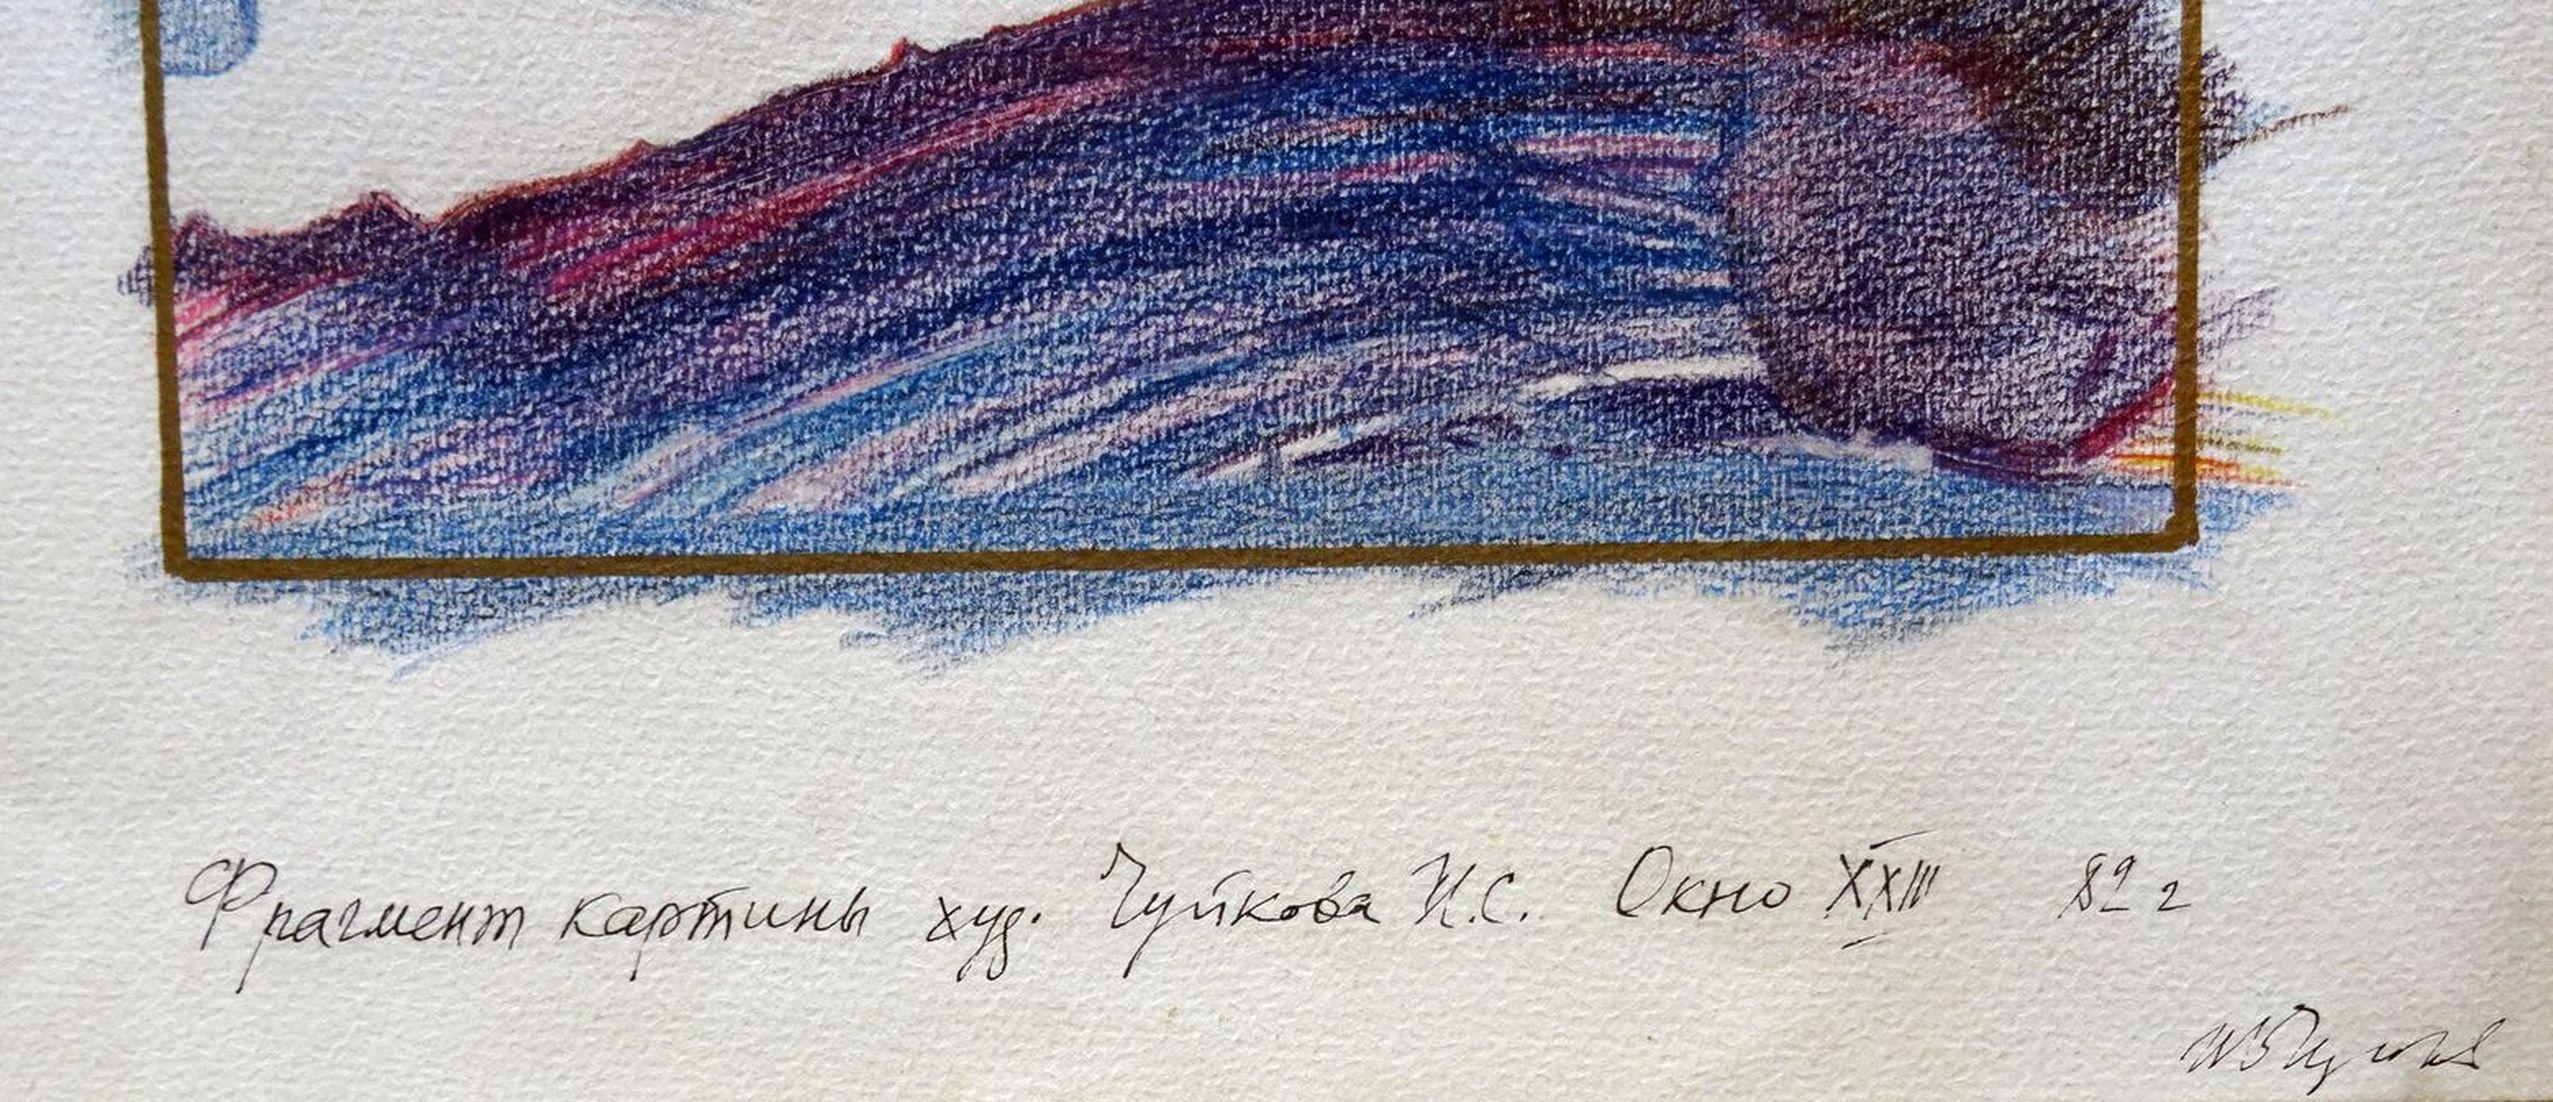 Фрагмент картины худ. Чуйкова И.С. Окно XXIII 82 г